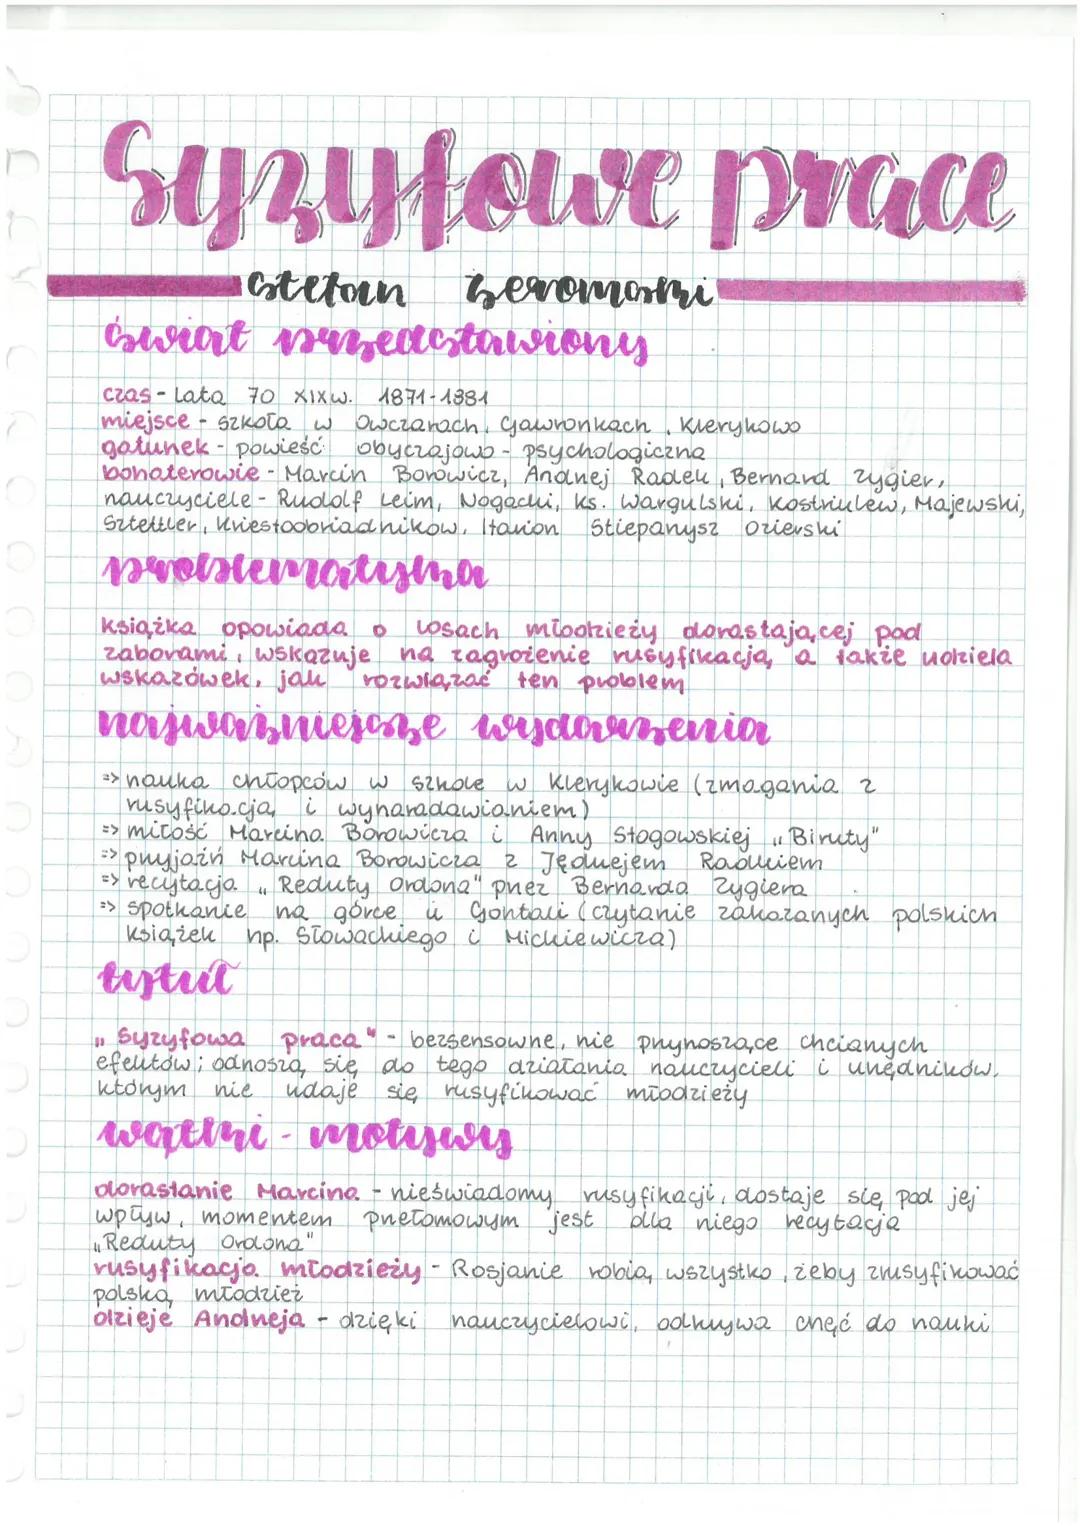 Syzyfowe prace
Stefan Żeromski
świat przedstawiony
czas - lata 70 XIXw. 1871-1881
miejsce - szkoła w Owczarach, Gawronkach, Klerykowo
gatunek - powieść obyczajowo - psychologiczna
bohaterowie - Marcin Borowicz, Andrzej Radek, Bernard Zygier,
nauczyciele - Rudolf Leim, Nogacki, ks. Wargulski, Kostriulew, Majewski,
Sztettler, Kriestoobriadnikow, Iłarion Stiepanysz Ozierski
problematyka
książka opowiada o losach młodzieży dorastającej pod
zaborami, wskazuje na zagrożenie rusyfikacją, a także udziela
wskazówek, jak rozwiązać ten problem
najważniejsze wydarzenia
=> nauka chłopców w szkole w Klerykowie (zmagania z
rusyfikacją i wynaradawianiem)
=> miłość Marcina Borowicza i Anny Stogowskiej „Biruty"
=> przyjaźń Marcina Borowicza z Jędrzejem Radkiem
=> recytacja „Reduty Ordona" przez Bernarda Zygiera
=> spotkanie na górce u Gontali (czytanie zakazanych polskich
książek np. Słowackiego i Mickiewicza)
tytuł
„Syzyfowa praca" - bezsensowne, nie przynoszące chcianych
efektów; odnoszą się do tego działania nauczycieli i urzędników,
którym nie udaje się rusyfikować młodzieży
wątki - motywy
dorastanie Marcina - nieświadomy rusyfikacji, dostaje się pod jej
wpływ, momentem przełomowym jest dla niego recytacja
„Reduty Ordona"
rusyfikacja młodzieży - Rosjanie robią wszystko, żeby zrusyfikować
polską młodzież
dzieje Andrzeja - dzięki nauczycielowi, odkrywa chęć do nauki